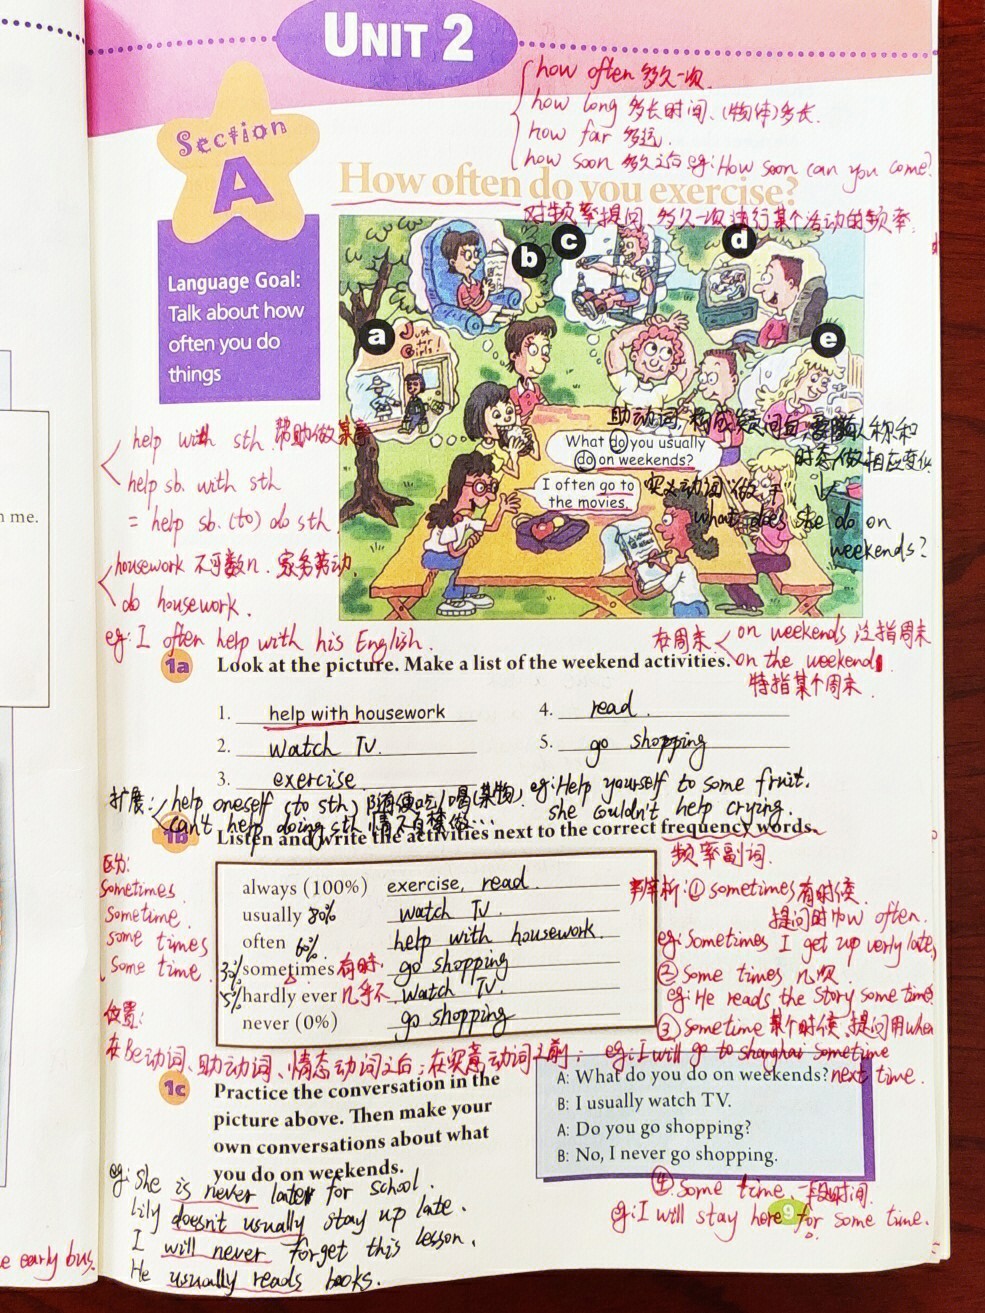 UNIT 2
how often 多久一次.
how long 多长时间、(物体)多长.
how far 多远.
how soon 多久之后 eg: How soon can you come?
Section
A
How often do you exercise?
对频率提问 多久一次 进行某个活动的频率.
Language Goal:
Talk about how
often you do
things
a
b
c
d
e
Just
for
Girls!
助动词,构成疑问句,需随人称和
时态做相应变化
What do you usually
do on weekends?
I often go to
the movies.
实义动词"做,干"
what does she do on
weekends?
n me.
help with sth 帮助做某事
help sb. with sth
= help sb. (to) do sth
housework 不可数n. 家务劳动.
do housework.
eg: I often help with his English.
在周末 on weekends 泛指周末
on the weekend
特指某个周末.
1a Look at the picture. Make a list of the weekend activities.
1. help with housework
2. watch TV.
3. exercise
4. read.
5. go shopping
扩展: help oneself (to sth) 随便吃/喝(某物) eg: Help yourself to some fruit.
can't help doing sth 情不自禁做… she couldn't help crying.
1b Listen and write the activities next to the correct frequency words.
频率副词.
区分:
Sometimes
Sometime.
some times
Some time.
always (100%) exercise, read
usually 80% watch TV.
often 60% help with housework.
30% sometimes 有时. go shopping
5% hardly ever 几乎不 watch TV
never (0%) go shopping
辨析: ① sometimes 有时候
提问时how often.
eg: Sometimes I get up verly late
② some times 几次
eg: He reads the story some times
③ sometime 某个时候、提问用when
eg: I will go to shanghai sometime
next time.
位置:
在Be动词、助动词、情态动词之后;在实意动词之前;
1c Practice the conversation in the
picture above. Then make your
own conversations about what
you do on weekends.
A: What do you do on weekends?
B: I usually watch TV.
A: Do you go shopping?
B: No, I never go shopping.
④ Some time. 一段时间.
eg: I will stay here for some time.
9
eg: She is never later for school.
Lily doesn't usually stay up late.
I will never forget this lesson.
He usually reads books.
e early bus.